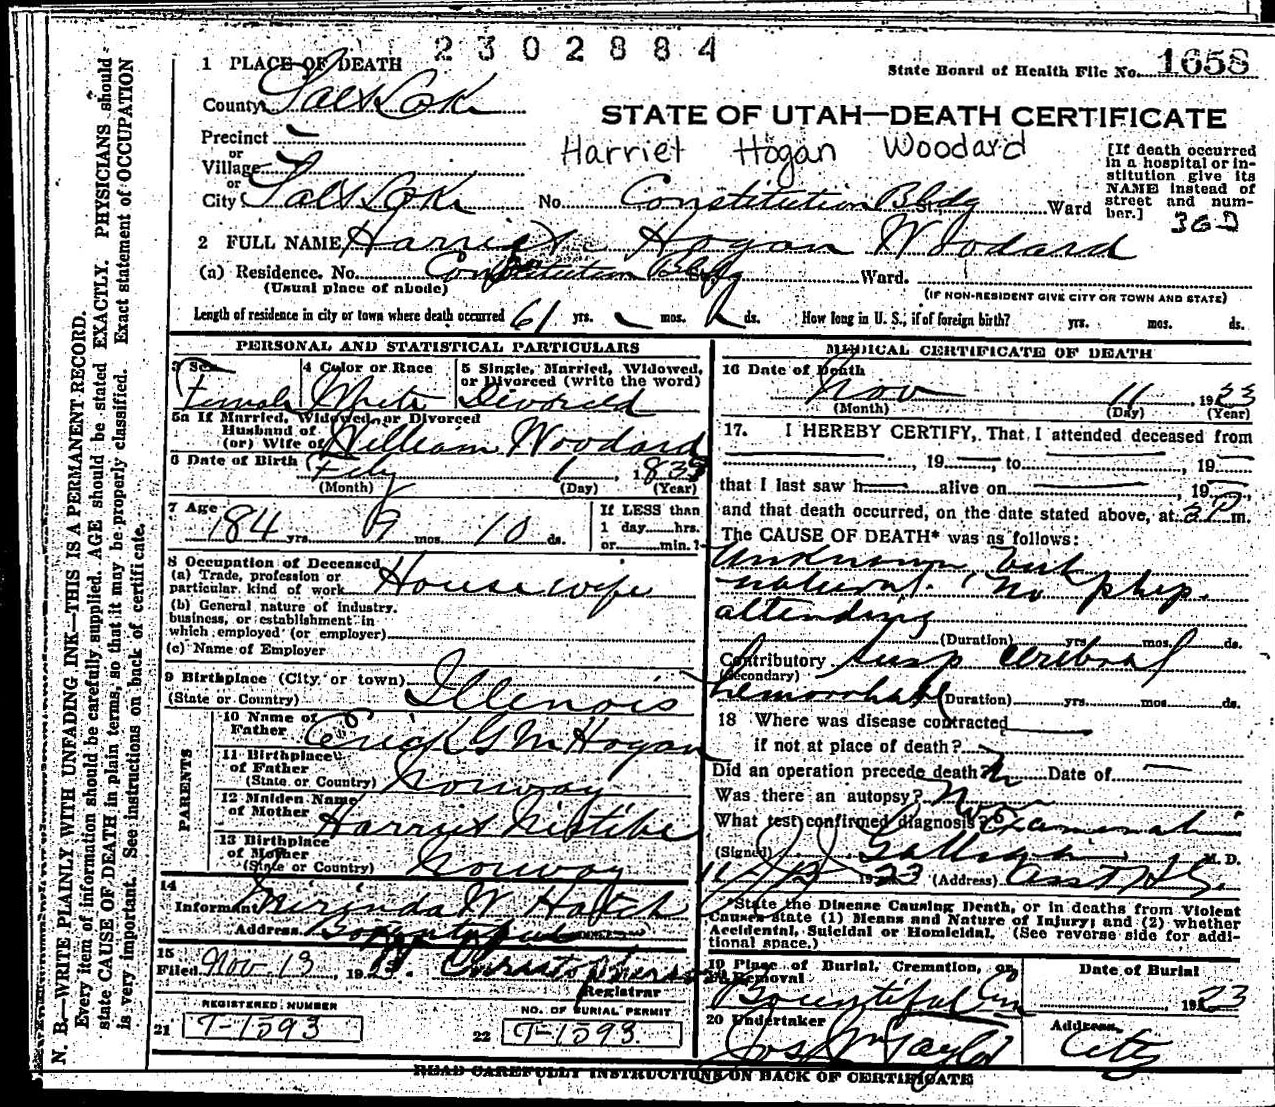 2302884
1 PLACE OF DEATH
State Board of Health File No. 1658
County Salt Lake
STATE OF UTAH—DEATH CERTIFICATE
Precinct
or
Harriet Hogan Woodard
Village
or
City Salt Lake No. Constitution Bldg St. Ward
[If death occurred
in a hospital or in-
stitution give its
NAME instead of
street and num-
ber.]
2 FULL NAME Harriet Hogan Woodard
(a) Residence. No. Constitution Bldg St. Ward.
(Usual place of abode)
(IF NON-RESIDENT GIVE CITY OR TOWN AND STATE)
Length of residence in city or town where death occurred 61 yrs. mos. ds. How long in U. S., if of foreign birth? yrs. mos. ds.
PERSONAL AND STATISTICAL PARTICULARS
3 Sex Female
4 Color or Race White
5 Single, Married, Widowed,
or Divorced (write the word)
Divorced
5a If Married, Widowed, or Divorced
Husband of
(or) Wife of William Woodard
6 Date of Birth 1
(Month) (Day) (Year)
7 Age 84 yrs. 9 mos. 10 ds.
If LESS than
1 day......hrs.
or......min.?
8 Occupation of Deceased
(a) Trade, profession or
particular kind of work Housewife
(b) General nature of industry,
business, or establishment in
which employed (or employer)
(c) Name of Employer
9 Birthplace (City or town)
(State or Country) Illenois
PARENTS
10 Name of
Father Erick G M Hogan
11 Birthplace
of Father
(State or Country) Norway
12 Maiden Name
of Mother Harriet
13 Birthplace
of Mother
(State or Country) Norway
14
Informant W Hatch
Address
15
Filed Nov 13, 1923.
Registrar
REGISTERED NUMBER
21 T-1593
NO. OF BURIAL PERMIT
22 T-1593
MEDICAL CERTIFICATE OF DEATH
16 Date of Death
Nov 11, 1923
(Month) (Day) (Year)
17. I HEREBY CERTIFY, That I attended deceased from
, 19 , to , 19
that I last saw h alive on , 19
and that death occurred, on the date stated above, at 3 P m.
The CAUSE OF DEATH* was as follows:
Unknown but
natural. No phys.
attending
(Duration) yrs. mos. ds.
Contributory cerebral
(Secondary)
hemorrhage (Duration) yrs. mos. ds.
18 Where was disease contracted
if not at place of death?
Did an operation precede death? Date of
Was there an autopsy?
What test confirmed diagnosis? Examination
(Signed) M. D.
1923 (Address)
*State the Disease Causing Death, or in deaths from Violent
Causes state (1) Means and Nature of Injury; and (2) whether
Accidental, Suicidal or Homicidal. (See reverse side for addi-
tional space.)
19 Place of Burial, Cremation, or
Removal
Bountiful Cem
Date of Burial
1923
20 Undertaker
Jos Wm Taylor
Address
City
READ CAREFULLY INSTRUCTIONS ON BACK OF CERTIFICATE
N. B.—WRITE PLAINLY WITH UNFADING INK—THIS IS A PERMANENT RECORD.
Every item of information should be carefully supplied. AGE should be stated EXACTLY. PHYSICIANS should
state CAUSE OF DEATH in plain terms, so that it may be properly classified. Exact statement of OCCUPATION
is very important. See instructions on back of certificate.